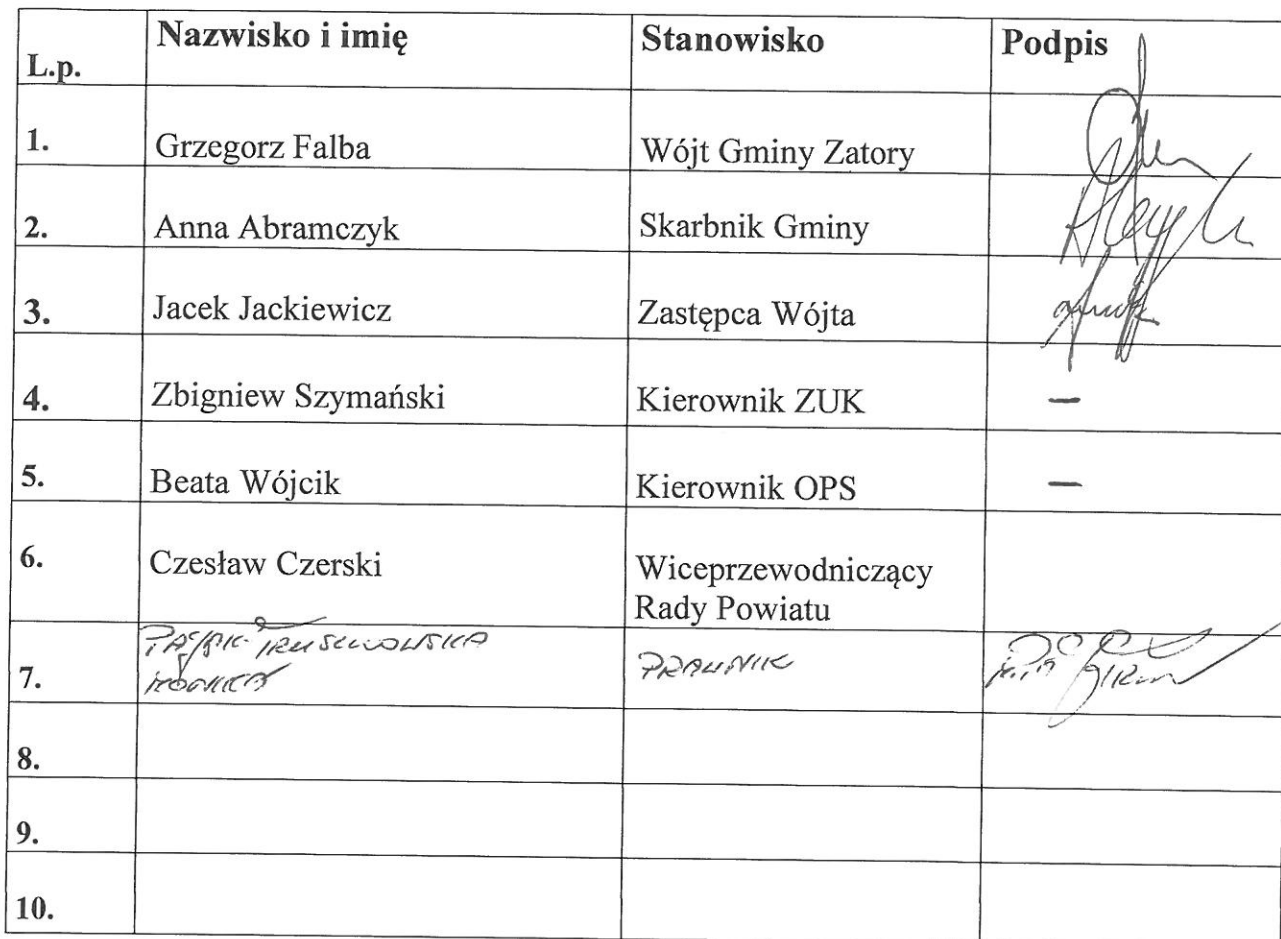 L.p. Nazwisko i imię Stanowisko Podpis
1. Grzegorz Falba Wójt Gminy Zatory
2. Anna Abramczyk Skarbnik Gminy
3. Jacek Jackiewicz Zastępca Wójta
4. Zbigniew Szymański Kierownik ZUK —
5. Beata Wójcik Kierownik OPS —
6. Czesław Czerski Wiceprzewodniczący
Rady Powiatu
7. MONIKA PRAWNIK
8.
9.
10.